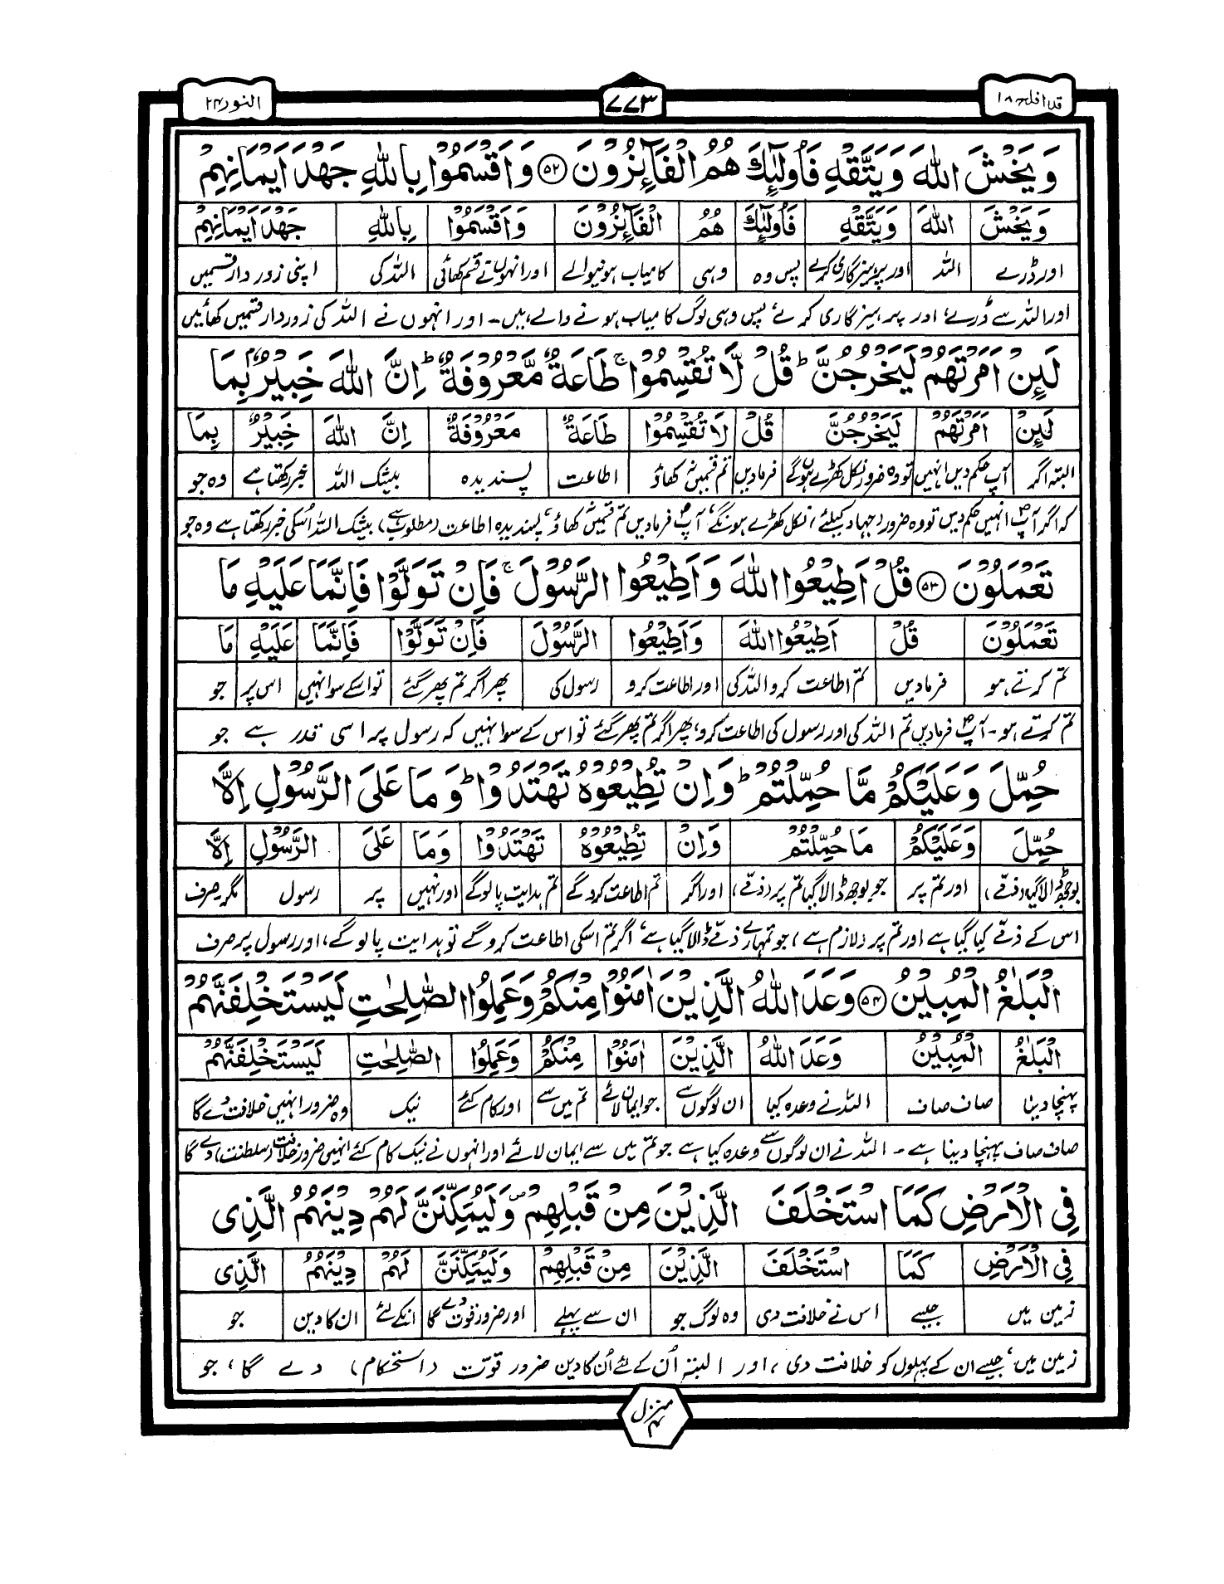 قد افلح ۱۸
۷۷۳
النور ۲۴
وَيَخْشَ اللّٰهَ وَيَتَّقْهِ فَاُولٰٓئِكَ هُمُ الْفَآئِزُوْنَ ﴿۵۲﴾ وَاَقْسَمُوْا بِاللّٰهِ جَهْدَ اَيْمَانِهِمْ
وَيَخْشَ | اللّٰهَ | وَيَتَّقْهِ | فَاُولٰٓئِكَ | هُمُ | الْفَآئِزُوْنَ | وَاَقْسَمُوْا | بِاللّٰهِ | جَهْدَ اَيْمَانِهِمْ
اور ڈرے | اللہ | اور پرہیزگاری کرے | پس وہ | وہی | کامیاب ہونیوالے | اور انہوں نے قسم کھائی | اللہ کی | اپنی زور دار قسمیں
اور اللہ سے ڈرے، اور پرہیزگاری کرے، پس وہی لوگ کامیاب ہونے والے ہیں۔ اور انہوں نے اللہ کی زوردار قسمیں کھائیں
لَئِنْ اَمَرْتَهُمْ لَيَخْرُجُنَّ ؕ قُلْ لَّا تُقْسِمُوْا ۚ طَاعَةٌ مَّعْرُوْفَةٌ ؕ اِنَّ اللّٰهَ خَبِيْرٌۢ بِمَا
لَئِنْ | اَمَرْتَهُمْ | لَيَخْرُجُنَّ | قُلْ | لَا تُقْسِمُوْا | طَاعَةٌ | مَعْرُوْفَةٌ | اِنَّ اللّٰهَ | خَبِيْرٌ | بِمَا
البتہ اگر | آپ حکم دیں انہیں | تو وہ ضرور نکل کھڑے ہوں گے | فرمادیں | تم قسمیں نہ کھاؤ | اطاعت | پسندیدہ | بیشک اللہ | خبر رکھتا ہے | وہ جو
کہ اگر آپ انہیں حکم دیں تو وہ ضرور (جہاد کیلئے) نکل کھڑے ہونگے، آپ فرمادیں تم قسمیں نہ کھاؤ، پسندیدہ اطاعت (مطلوب ہے)، بیشک اللہ اُسکی خبر رکھتا ہے وہ جو
تَعْمَلُوْنَ ﴿۵۳﴾ قُلْ اَطِيْعُوا اللّٰهَ وَاَطِيْعُوا الرَّسُوْلَ ۚ فَاِنْ تَوَلَّوْا فَاِنَّمَا عَلَيْهِ مَا
تَعْمَلُوْنَ | قُلْ | اَطِيْعُوا اللّٰهَ | وَاَطِيْعُوا | الرَّسُوْلَ | فَاِنْ تَوَلَّوْا | فَاِنَّمَا | عَلَيْهِ | مَا
تم کرتے ہو | فرمادیں | تم اطاعت کرو اللہ کی | اور اطاعت کرو | رسول کی | پھر اگر تم پھر گئے | تو اسکے سوا نہیں | اس پر | جو
تم کرتے ہو۔ آپ فرمادیں تم اللہ کی اور رسول کی اطاعت کرو، پھر اگر تم پھر گئے تو اس کے سوا نہیں کہ رسول پر اسی قدر ہے جو
حُمِّلَ وَعَلَيْكُمْ مَّا حُمِّلْتُمْ ؕ وَاِنْ تُطِيْعُوْهُ تَهْتَدُوْا ؕ وَمَا عَلَى الرَّسُوْلِ اِلَّا
حُمِّلَ | وَعَلَيْكُمْ | مَا حُمِّلْتُمْ | وَاِنْ | تُطِيْعُوْهُ | تَهْتَدُوْا | وَمَا | عَلَى | الرَّسُوْلِ | اِلَّا
بوجھ ڈالا گیا (ذمّے) | اور تم پر | جو بوجھ ڈالا گیا تم پر (ذمّے) | اور اگر | تم اطاعت کرو گے | تم ہدایت پالو گے | اور نہیں | پر | رسول | مگر صرف
اس کے ذمّے کیا گیا ہے اور تم پر (لازم ہے) جو تمہارے ذمّے ڈالا گیا ہے، اگر تم اسکی اطاعت کرو گے تو ہدایت پالو گے، اور رسول پر صرف
الْبَلٰغُ الْمُبِيْنُ ﴿۵۴﴾ وَعَدَ اللّٰهُ الَّذِيْنَ اٰمَنُوْا مِنْكُمْ وَعَمِلُوا الصّٰلِحٰتِ لَيَسْتَخْلِفَنَّهُمْ
الْبَلٰغُ | الْمُبِيْنُ | وَعَدَ اللّٰهُ | الَّذِيْنَ | اٰمَنُوْا | مِنْكُمْ | وَعَمِلُوا | الصّٰلِحٰتِ | لَيَسْتَخْلِفَنَّهُمْ
پہنچا دینا | صاف صاف | اللہ نے وعدہ کیا | ان لوگوں سے | جو ایمان لائے | تم میں سے | اور کام کئے | نیک | وہ ضرور انہیں خلافت دے گا
صاف صاف پہنچا دینا ہے۔ اللہ نے ان لوگوں سے وعدہ کیا ہے جو تم میں سے ایمان لائے اور انہوں نے نیک کام کئے انہیں ضرور خلافت (سلطنت) دے گا
فِى الْاَرْضِ كَمَا اسْتَخْلَفَ الَّذِيْنَ مِنْ قَبْلِهِمْ ۪ وَلَيُمَكِّنَنَّ لَهُمْ دِيْنَهُمُ الَّذِى
فِى الْاَرْضِ | كَمَا | اسْتَخْلَفَ | الَّذِيْنَ | مِنْ قَبْلِهِمْ | وَلَيُمَكِّنَنَّ | لَهُمْ | دِيْنَهُمُ | الَّذِى
زمین میں | جیسے | اس نے خلافت دی | وہ لوگ جو | ان سے پہلے | اور ضرور قوت دے گا | انکے لئے | ان کا دین | جو
زمین میں، جیسے ان کے پہلوں کو خلافت دی، اور البتہ اُن کے لئے اُن کا دین ضرور قوّت (استحکام) دے گا، جو
منزل ۴